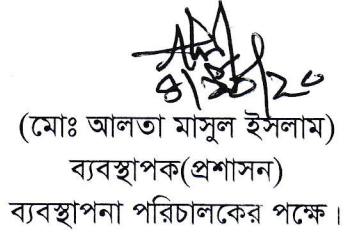 (মোঃ আলতা মাসুল ইসলাম)
ব্যবস্থাপক(প্রশাসন)
ব্যবস্থাপনা পরিচালকের পক্ষে।